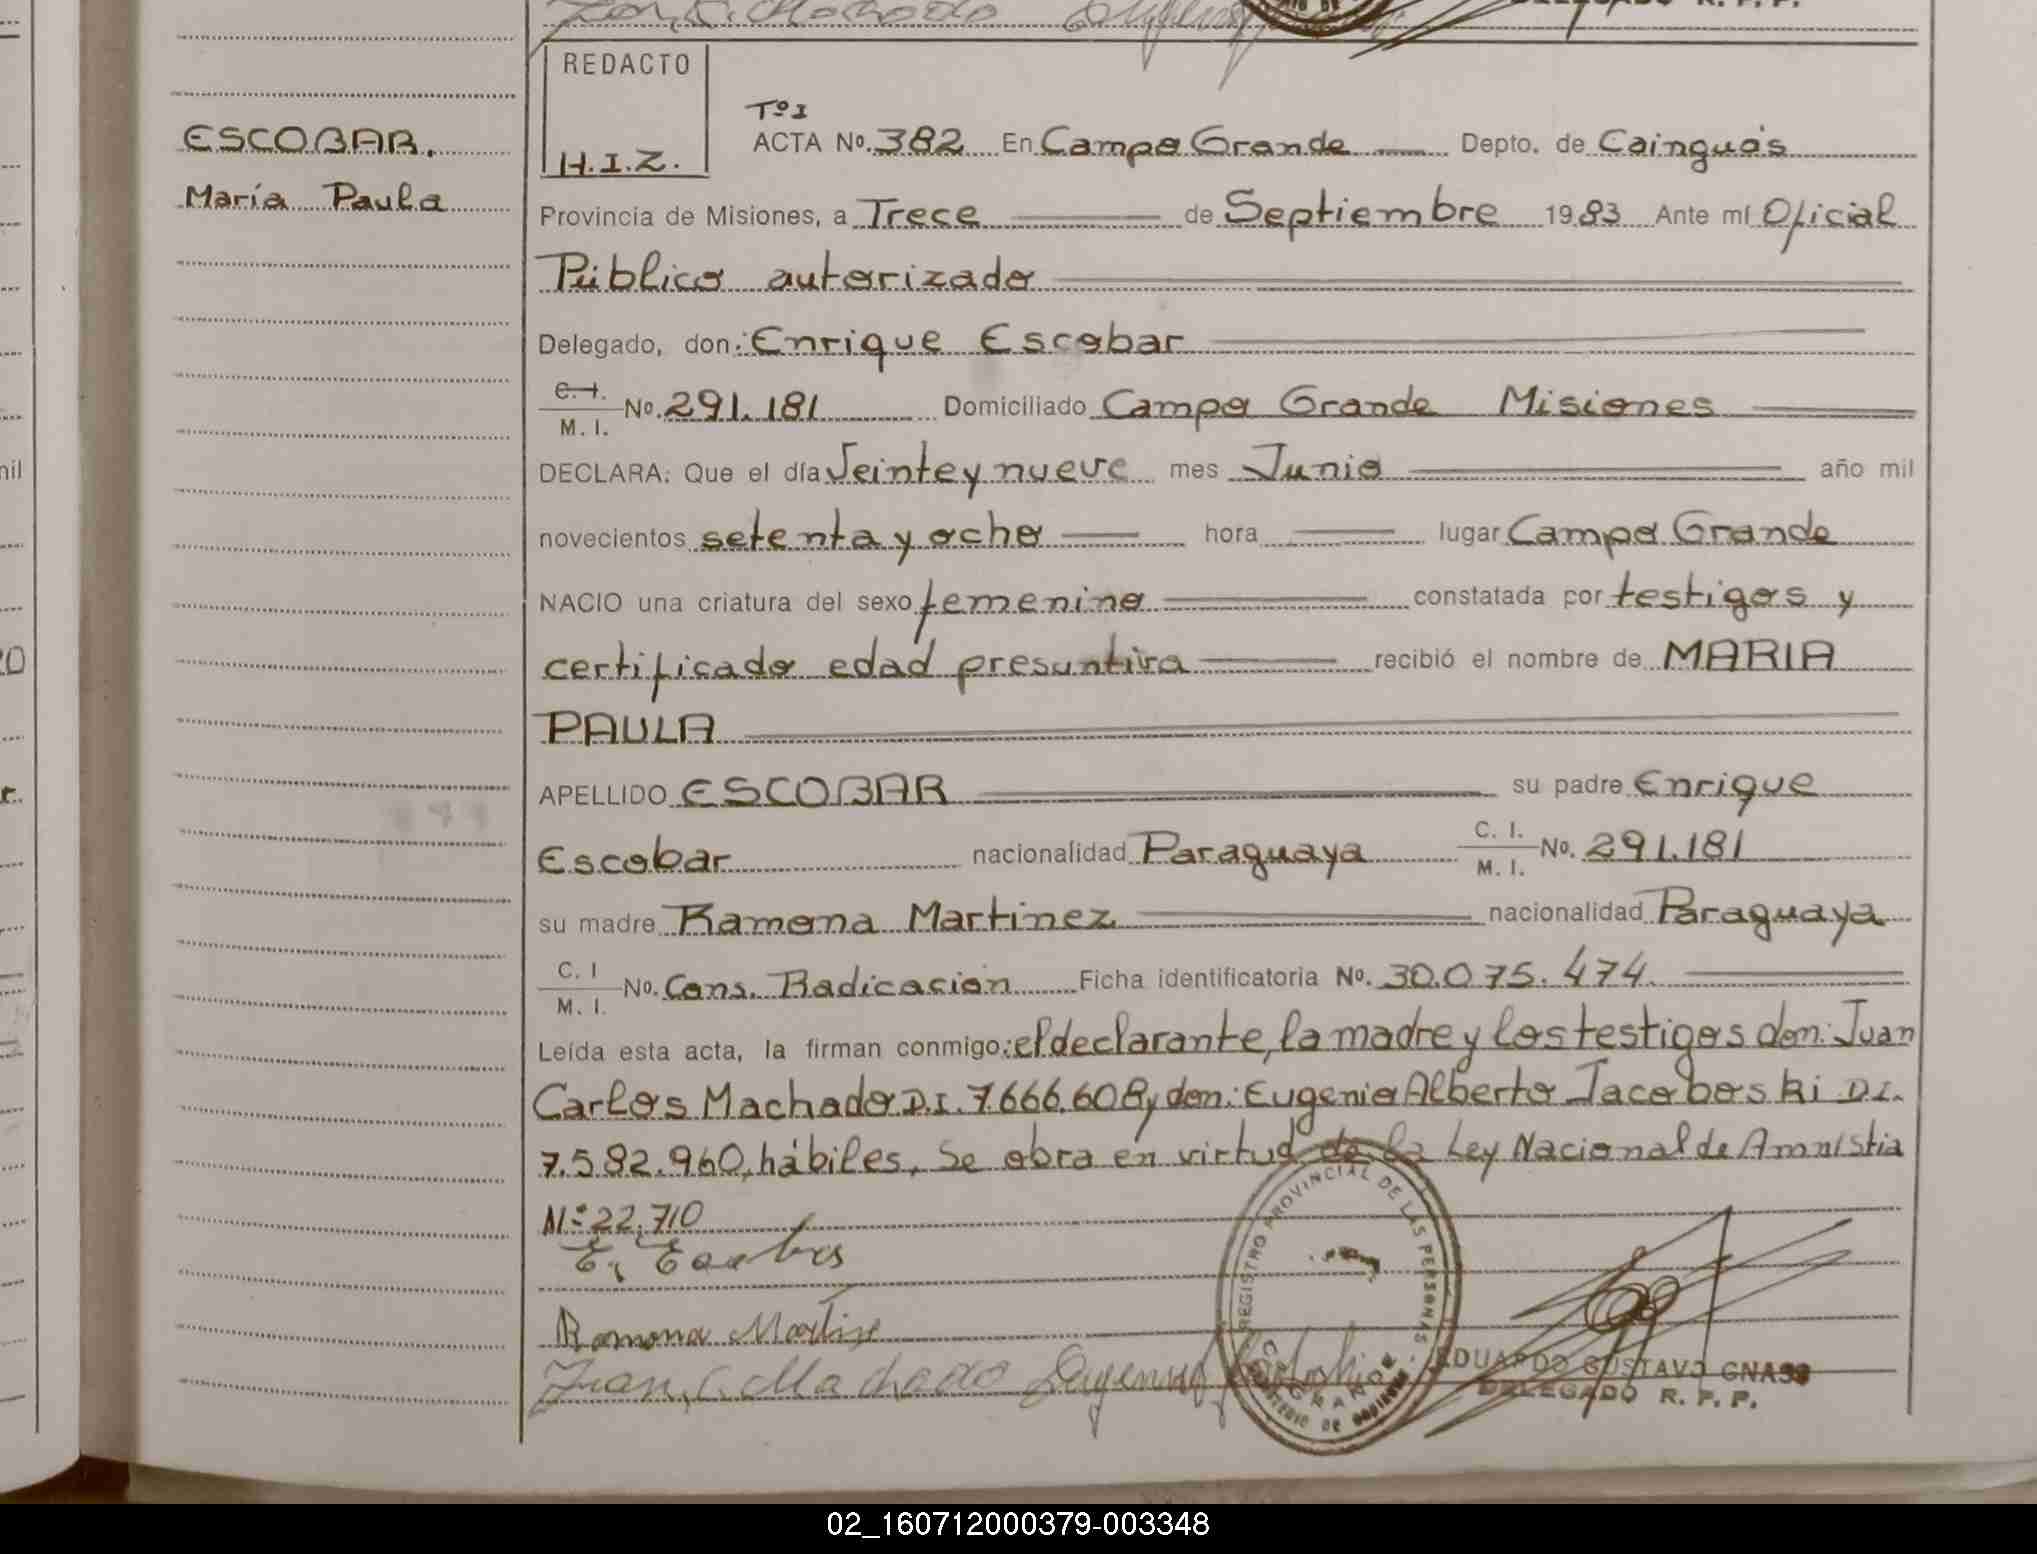 Juan, C. Machado
DELEGADO R. P. P.
REDACTO
H.I.Z.
ESCOBAR.
María Paula
Tº I
ACTA No. 382 En Campo Grande Depto. de Cainguás
Provincia de Misiones, a Trece de Septiembre 1983 Ante mí Oficial
Público autorizado
Delegado, don: Enrique Escobar
C. I. / M. I. No. 291.181 Domiciliado Campo Grande Misiones
DECLARA: Que el día Veinte y nueve mes Junio año mil
novecientos setenta y ocho hora lugar Campo Grande
NACIO una criatura del sexo femenino constatada por testigos y
certificado edad presuntiva recibió el nombre de MARIA
PAULA
APELLIDO ESCOBAR su padre Enrique
Escobar nacionalidad Paraguaya C. I. / M. I. No. 291.181
su madre Ramona Martinez nacionalidad Paraguaya
C. I / M. I. No. Cons. Radicación Ficha identificatoria No. 30.075.474.
Leída esta acta, la firman conmigo: el declarante, la madre y los testigos don: Juan
Carlos Machado D.I. 7.666.608 y don: Eugenio Alberto Jacoboski D.I.
7.582.960, hábiles, Se obra en virtud de la Ley Nacional de Amnistia
Nº 22.710
Ramona Martinez
Juan, C. Machado
REGISTRO PROVINCIAL DE LAS PERSONAS
EDUARDO GUSTAVO GNASS
DELEGADO R. P. P.
nil
20
r.
02_160712000379-003348